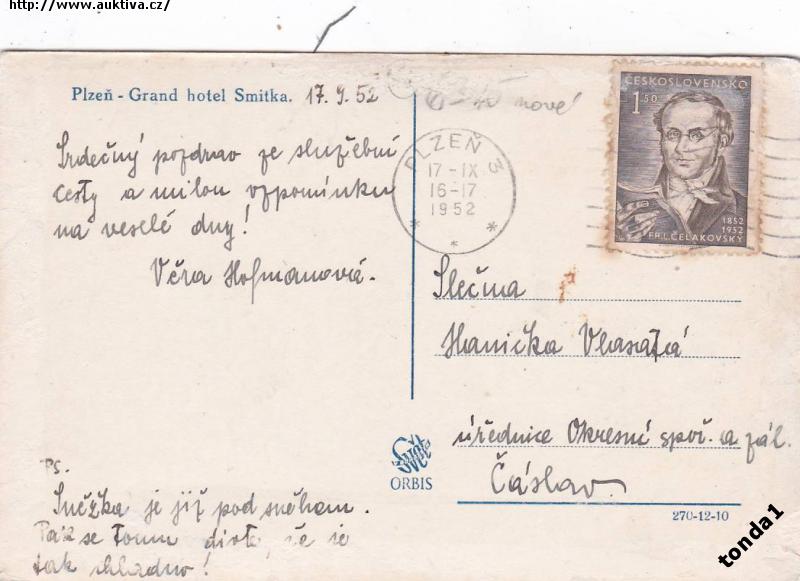 http://www.auktiva.cz/
Plzeň - Grand hotel Smitka. 17. 9. 52
Srdečný pozdrav ze služební
cesty a milou vzpomínku
na veselé dny!
Věra Hofmanová.
PS.
Sněžka je již pod sněhem.
Pak se tomu divte, že je
tak chladno!
nové
PLZEŇ 3
17-IX
16-17
1952
ČESKOSLOVENSKO
1.50
1852
1952
FR. L. ČELAKOVSKÝ
Slečna
Hanička Vlasatá
úřednice Okresní spoř. a zál.
Čáslav
Svět
ORBIS
270-12-10
tonda1